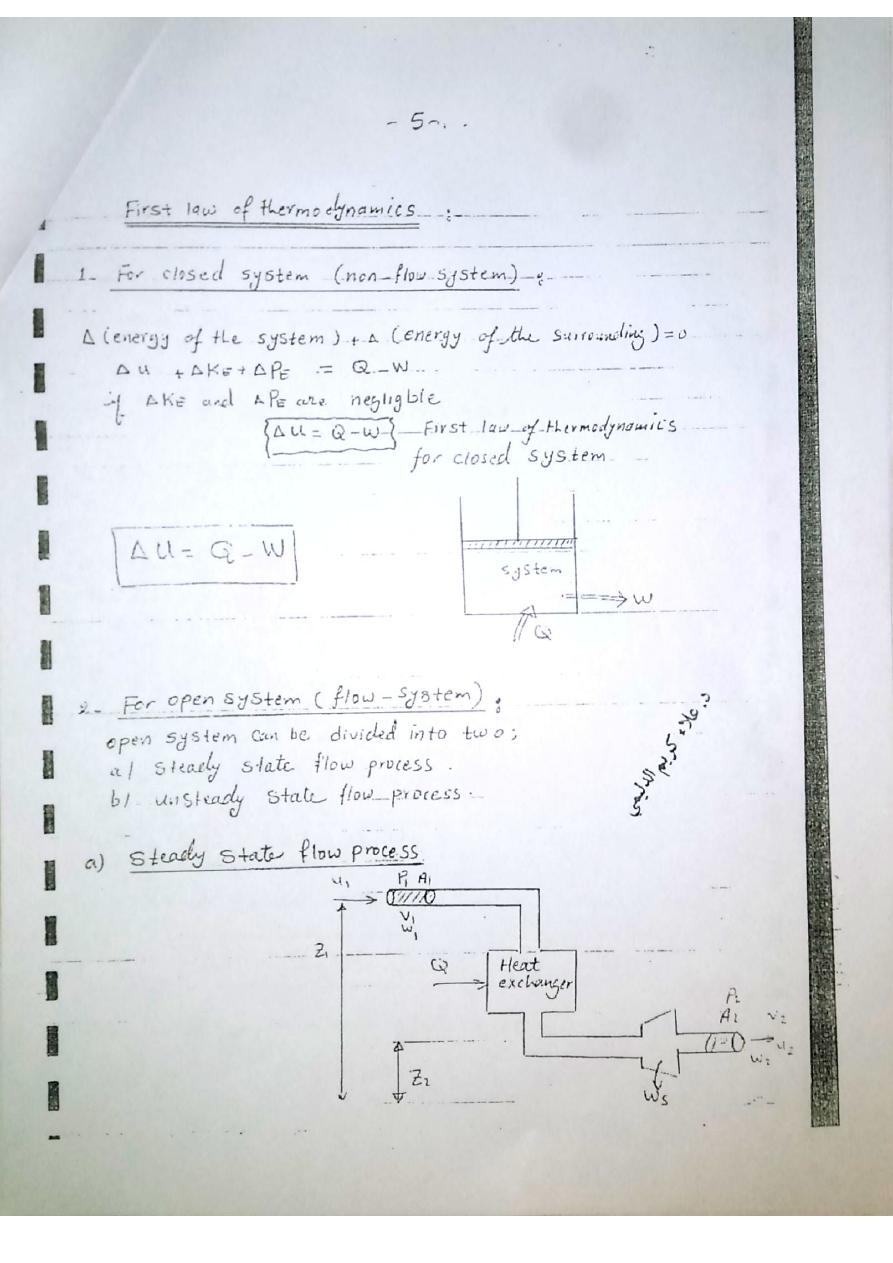 - 5 -
First law of thermodynamics :
1- For closed system (non-flow system) :
Δ (energy of the system) + Δ (energy of the surrounding) = 0
Δu + ΔKE + ΔPE = Q - W
if ΔKE and ΔPE are negligble
ΔU = Q - W First law of thermodynamics
for closed system
ΔU = Q - W
system
W
Q
2- For open system (flow - system) :
open system can be divided into two;
a/ steady state flow process .
b/ unsteady state flow process .
د. علاء كريم
a) Steady state flow process
u1 P1 A1
V1
W1
Z1
Q
Heat
exchanger
P2
A2 V2
u2
W2
Z2
Ws